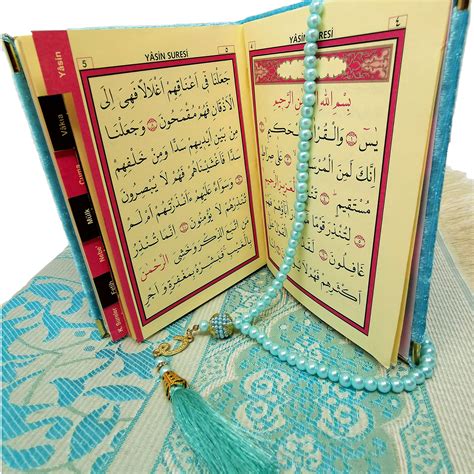 ٤
SURESİ
بِسْمِ اللّٰهِ الرَّحْمٰنِ الرَّحِيمِ
يٰسٓ وَالْقُرْاٰنِ الْحَكِيمِ
اِنَّكَ لَمِنَ الْمُرْسَلِينَ عَلٰى صِرَاطٍ
مُسْتَقِيمٍ تَنْزِيلَ الْعَزِيزِ الرَّحِيمِ
لِتُنْذِرَ قَوْمًا مَا
غَافِلُونَ لَقَدْ
اَكْثَرِهِمْ فَهُمْ لَا
5 YÂSİN SURESİ ٥
جَعَلْنَا فِى اَعْنَاقِهِمْ اَغْلَالًا فَهِىَ اِلَى
الْاَذْقَانِ فَهُمْ مُقْمَحُونَ وَجَعَلْنَا
مِنْ بَيْنِ اَيْدِيهِمْ سَدًّا وَمِنْ خَلْفِهِمْ
سَدًّا فَاَغْشَيْنَاهُمْ فَهُمْ لَا يُبْصِرُونَ
وَسَوَاءٌ عَلَيْهِمْ ءَاَنْذَرْتَهُمْ اَمْ لَمْ
تُنْذِرْهُمْ لَا يُؤْمِنُونَ اِنَّمَا تُنْذِرُ
مَنِ اتَّبَعَ الذِّكْرَ وَخَشِىَ الرَّحْمٰنَ
بِالْغَيْبِ فَبَشِّرْهُ بِمَغْفِرَةٍ وَاَجْرٍ
Yâsin
Vâkıa
Cuma
Mülk
Nebe
Fetih